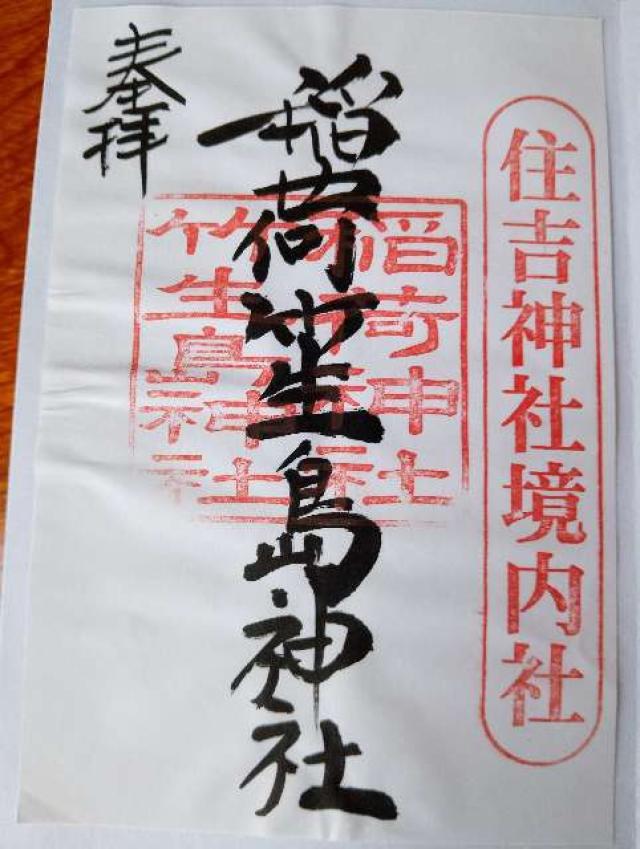 住吉神社境内社
稲荷竹生島神社
稲荷神社
竹生島神社
奉拝